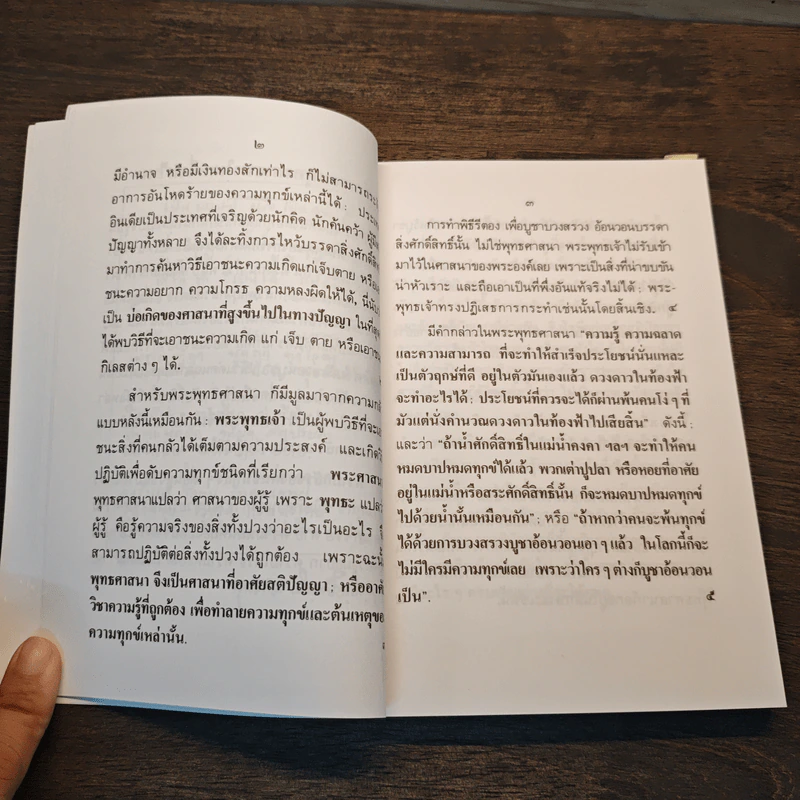 ๒
มีอำนาจ หรือมีเงินทองสักเท่าไร ก็ไม่สามารถระ
อาการอันโหดร้ายของความทุกข์เหล่านี้ได้ : ประ
อินเดียเป็นประเทศที่เจริญด้วยนักคิด นักค้นคว้า ผู้
ปัญญาทั้งหลาย จึงได้ละทิ้งการไหว้บรรดาสิ่งศักดิ์สิ
มาทำการค้นหาวิธีเอาชนะความเกิดแก่เจ็บตาย หรือ
ชนะความอยาก ความโกรธ ความหลงผิดให้ได้, นี่นับ
เป็น บ่อเกิดของศาสนาที่สูงขึ้นไปในทางปัญญา ในที่สุด
ได้พบวิธีที่จะเอาชนะความเกิด แก่ เจ็บ ตาย หรือเอาช
กิเลสต่าง ๆ ได้.
สำหรับพระพุทธศาสนา ก็มีมูลมาจากความกลั
แบบหลังนี้เหมือนกัน : พระพุทธเจ้า เป็นผู้พบวิธีที่จะเ
ชนะสิ่งที่คนกลัวได้เต็มตามความประสงค์ และเกิดวิ
ปฏิบัติเพื่อดับความทุกข์ชนิดที่เรียกว่า พระศาสน
พุทธศาสนาแปลว่า ศาสนาของผู้รู้ เพราะ พุทธะ แปลว
ผู้รู้ คือรู้ความจริงของสิ่งทั้งปวงว่าอะไรเป็นอะไร
สามารถปฏิบัติต่อสิ่งทั้งปวงได้ถูกต้อง เพราะฉะนั้
พุทธศาสนา จึงเป็นศาสนาที่อาศัยสติปัญญา ; หรืออาศั
วิชาความรู้ที่ถูกต้อง เพื่อทำลายความทุกข์และต้นเหตุขอ
ความทุกข์เหล่านั้น.
๓
การทำพิธีรีตอง เพื่อบูชาบวงสรวง อ้อนวอนบรรดา
สิ่งศักดิ์สิทธิ์นั้น ไม่ใช่พุทธศาสนา พระพุทธเจ้าไม่รับเข้า
มาไว้ในศาสนาของพระองค์เลย เพราะเป็นสิ่งที่น่าขบขัน
น่าหัวเราะ และถือเอาเป็นที่พึ่งอันแท้จริงไม่ได้ : พระ-
พุทธเจ้าทรงปฏิเสธการกระทำเช่นนั้นโดยสิ้นเชิง. ๔
มีคำกล่าวในพระพุทธศาสนา “ความรู้ ความฉลาด
และความสามารถ ที่จะทำให้สำเร็จประโยชน์นั่นแหละ
เป็นตัวฤกษ์ที่ดี อยู่ในตัวมันเองแล้ว ดวงดาวในท้องฟ้า
จะทำอะไรได้ : ประโยชน์ที่ควรจะได้ก็ผ่านพ้นคนโง่ ๆ ที่
มัวแต่นั่งคำนวณดวงดาวในท้องฟ้าไปเสียสิ้น” ดังนี้ ;
และว่า “ถ้าน้ำศักดิ์สิทธิ์ในแม่น้ำคงคา ฯลฯ จะทำให้คน
หมดบาปหมดทุกข์ได้แล้ว พวกเต่าปูปลา หรือหอยที่อาศัย
อยู่ในแม่น้ำหรือสระศักดิ์สิทธิ์นั้น ก็จะหมดบาปหมดทุกข์
ไปด้วยน้ำนั้นเหมือนกัน” ; หรือ “ถ้าหากว่าคนจะพ้นทุกข์
ได้ด้วยการบวงสรวงบูชาอ้อนวอนเอา ๆ แล้ว ในโลกนี้ก็จะ
ไม่มีใครมีความทุกข์เลย เพราะว่าใคร ๆ ต่างก็บูชาอ้อนวอน
เป็น”. ๕